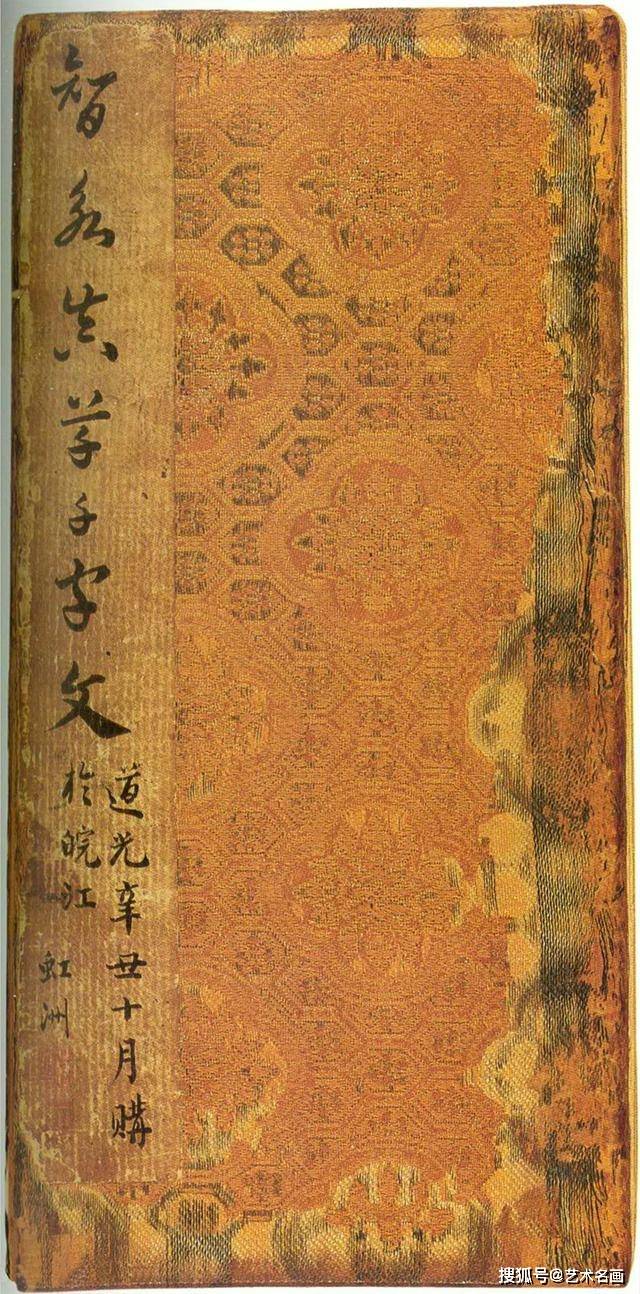 智永真草千字文
道光辛丑十月購
於皖江
虹洲
搜狐号@艺术名画